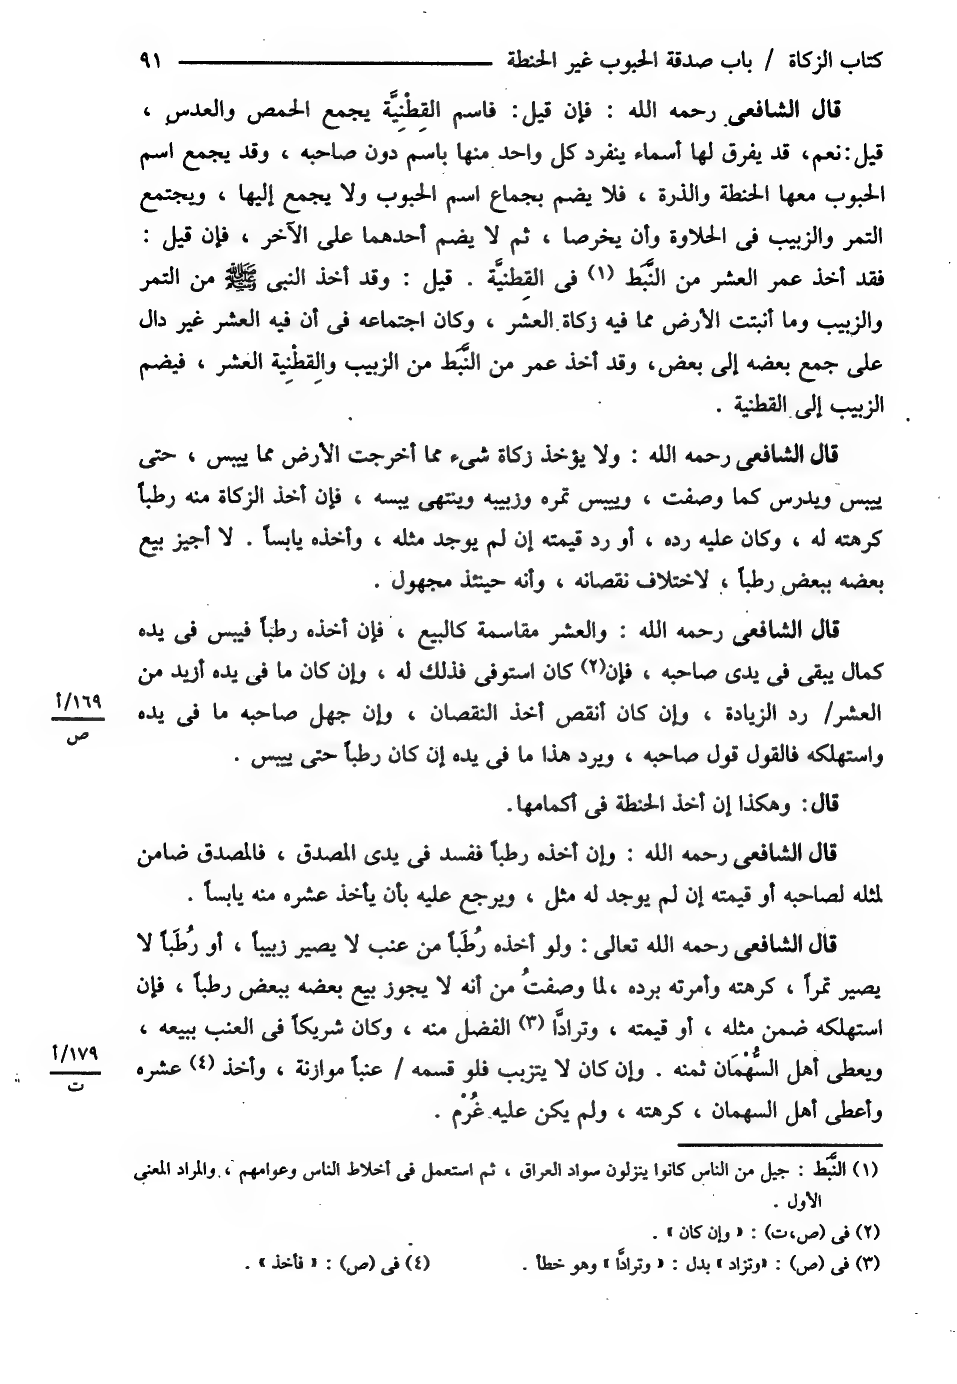 كتاب الزكاة / باب صدقة الحبوب غير الحنطة ٩١
قال الشافعى رحمه الله : فإن قيل: فاسم القِطْنِيَّة يجمع الحمص والعدس ،
قيل: نعم، قد يفرق لها أسماء ينفرد كل واحد منها باسم دون صاحبه ، وقد يجمع اسم
الحبوب معها الحنطة والذرة ، فلا يضم بجماع اسم الحبوب ولا يجمع إليها ، ويجتمع
التمر والزبيب فى الحلاوة وأن يخرصا ، ثم لا يضم أحدهما على الآخر ، فإن قيل :
فقد أخذ عمر العشر من النَّبَط (١) فى القِطنيَّة . قيل : وقد أخذ النبى ﷺ من التمر
والزبيب وما أنبتت الأرض مما فيه زكاة العشر ، وكان اجتماعه فى أن فيه العشر غير دال
على جمع بعضه إلى بعض، وقد أخذ عمر من النَّبَط من الزبيب والقِطْنِية العشر ، فيضم
الزبيب إلى القطنية .
قال الشافعى رحمه الله : ولا يؤخذ زكاة شىء مما أخرجت الأرض مما ييبس ، حتى
ييبس ويدرس كما وصفت ، وييبس تمره وزبيبه وينتهى يبسه ، فإن أخذ الزكاة منه رطباً
كرهته له ، وكان عليه رده ، أو رد قيمته إن لم يوجد مثله ، وأخذه يابساً . لا أجيز بيع
بعضه ببعض رطباً ، لاختلاف نقصانه ، وأنه حينئذ مجهول .
قال الشافعى رحمه الله : والعشر مقاسمة كالبيع ، فإن أخذه رطباً فيبس فى يده
كمال يبقى فى يدى صاحبه ، فإن(٢) كان استوفى فذلك له ، وإن كان ما فى يده أزيد من
العشر/ رد الزيادة ، وإن كان أنقص أخذ النقصان ، وإن جهل صاحبه ما فى يده
١٦٩/أ
ص
واستهلكه فالقول قول صاحبه ، ويرد هذا ما فى يده إن كان رطباً حتى ييبس .
قال: وهكذا إن أخذ الحنطة فى أكمامها.
قال الشافعى رحمه الله : وإن أخذه رطباً ففسد فى يدى المصدق ، فالمصدق ضامن
لمثله لصاحبه أو قيمته إن لم يوجد له مثل ، ويرجع عليه بأن يأخذ عشره منه يابساً .
قال الشافعى رحمه الله تعالى : ولو أخذه رُطَباً من عنب لا يصير زبيباً ، أو رُطَباً لا
يصير تمراً ، كرهته وأمرته برده ، لما وصفتُ من أنه لا يجوز بيع بعضه ببعض رطباً ، فإن
استهلكه ضمن مثله ، أو قيمته ، وترادَّا (٣) الفضل منه ، وكان شريكاً فى العنب ببيعه ،
ويعطى أهل السُّهْمَان ثمنه . وإن كان لا يتزبب فلو قسمه / عنباً موازنة ، وأخذ (٤) عشره
١٧٩/أ
ت
وأعطى أهل السهمان ، كرهته ، ولم يكن عليه غُرْم .
(١) النَّبَط : جيل من الناس كانوا ينزلون سواد العراق ، ثم استعمل فى أخلاط الناس وعوامهم ، والمراد المعنى
الأول .
(٢) فى (ص،ت) : « وإن كان » .
(٣) فى (ص) : «وتزاد » بدل : « وترادَّا » وهو خطأ .
(٤) فى (ص) : « فأخذ » .